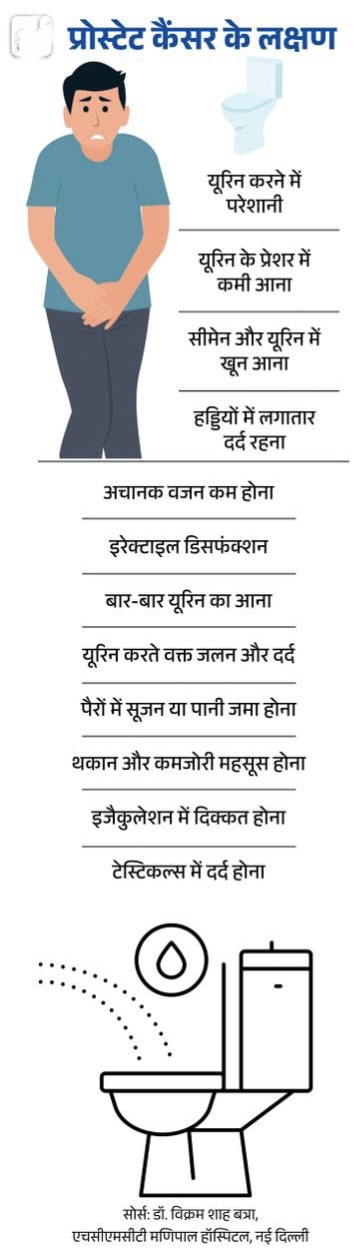 प्रोस्टेट कैंसर के लक्षण
यूरिन करने में
परेशानी
यूरिन के प्रेशर में
कमी आना
सीमेन और यूरिन में
खून आना
हड्डियों में लगातार
दर्द रहना
अचानक वजन कम होना
इरेक्टाइल डिसफंक्शन
बार-बार यूरिन का आना
यूरिन करते वक्त जलन और दर्द
पैरों में सूजन या पानी जमा होना
थकान और कमजोरी महसूस होना
इजैकुलेशन में दिक्कत होना
टेस्टिकल्स में दर्द होना
सोर्स: डॉ. विक्रम शाह बत्रा,
एचसीएमसीटी मणिपाल हॉस्पिटल, नई दिल्ली